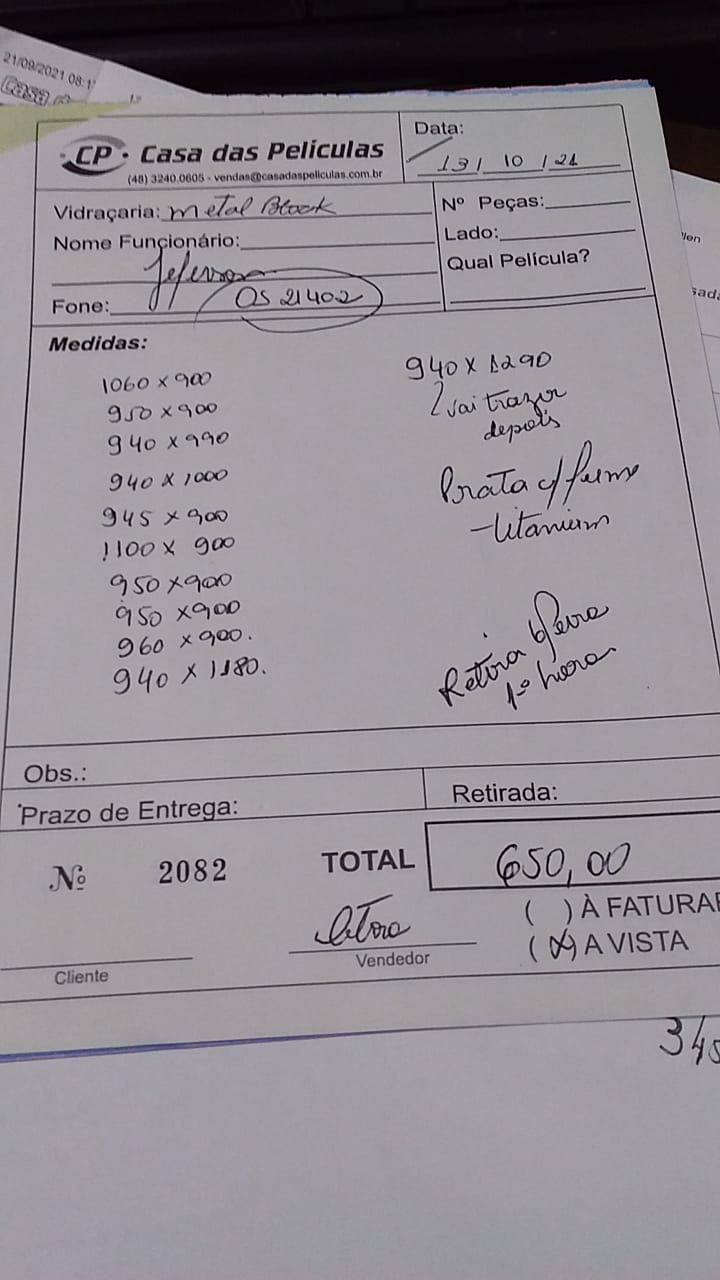 21/09/2021 08:1
Casa
CP • Casa das Películas
(48) 3240.0605 - vendas@casadaspeliculas.com.br
Data:
13/ 10 /21
Vidraçaria: Metal Block
Nome Funcionário:
Jeferson
Fone: OS 21402
Nº Peças:
Lado:
Qual Película?
Medidas:
1060 x 900
950 x 900
940 x 990
940 x 1000
945 x 900
1100 x 900
950 x 900
950 x 900
960 x 900.
940 x 1180.
940 x 1290
vai trazer
depois
Prata c/ fume
- titanium
Retira
1º hora
Obs.:
Prazo de Entrega:
Retirada:
Nº 2082
TOTAL
650,00
( ) À FATURAR
(X) A VISTA
Cliente
Vendedor
345